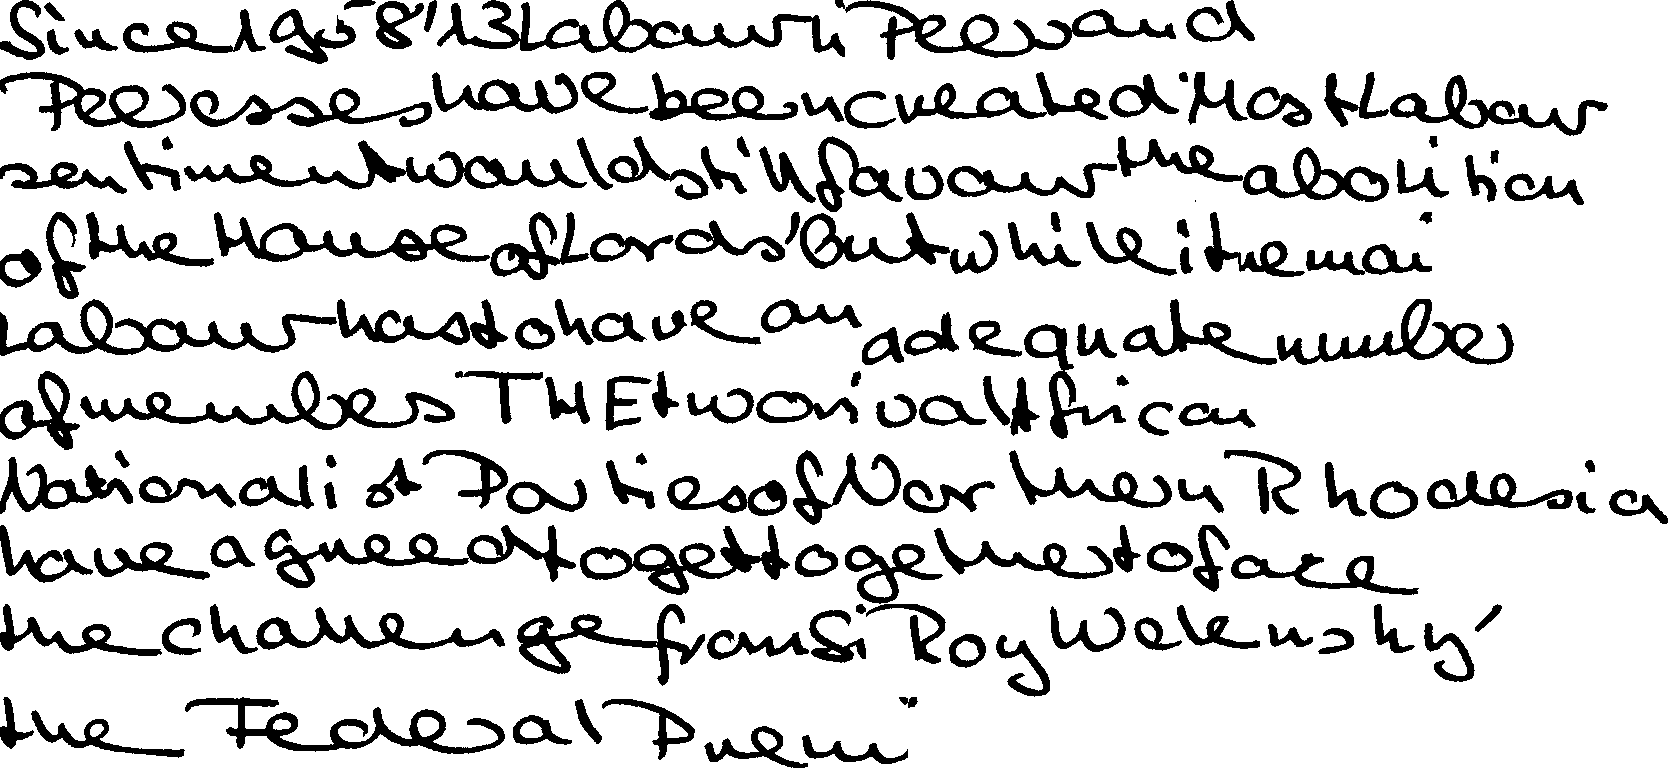 Since 1958, 13 Labour life Peers and
Peeresses have been created. Most Labour
sentiment would still favour the abolition
of the House of Lords, but while it remai
Labour has to have an adequate numbe
of membes THE two rival African
Nationalist Parties of Northern Rhodesia
have agreed to get together to face
the challenge from Si Roy Welensky,
the Federal Premi